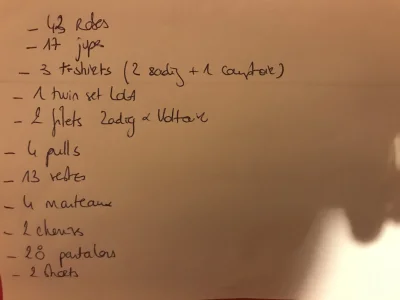 - 43 Robes
- 17 jupes
- 3 t-shirts (2 zadig + 1 comptoir)
- 1 twin set
- 2 gilets Zadig & Voltaire
- 4 pulls
- 13 vestes
- 4 manteaux
- 2
- 20 pantalons
- 2 shorts